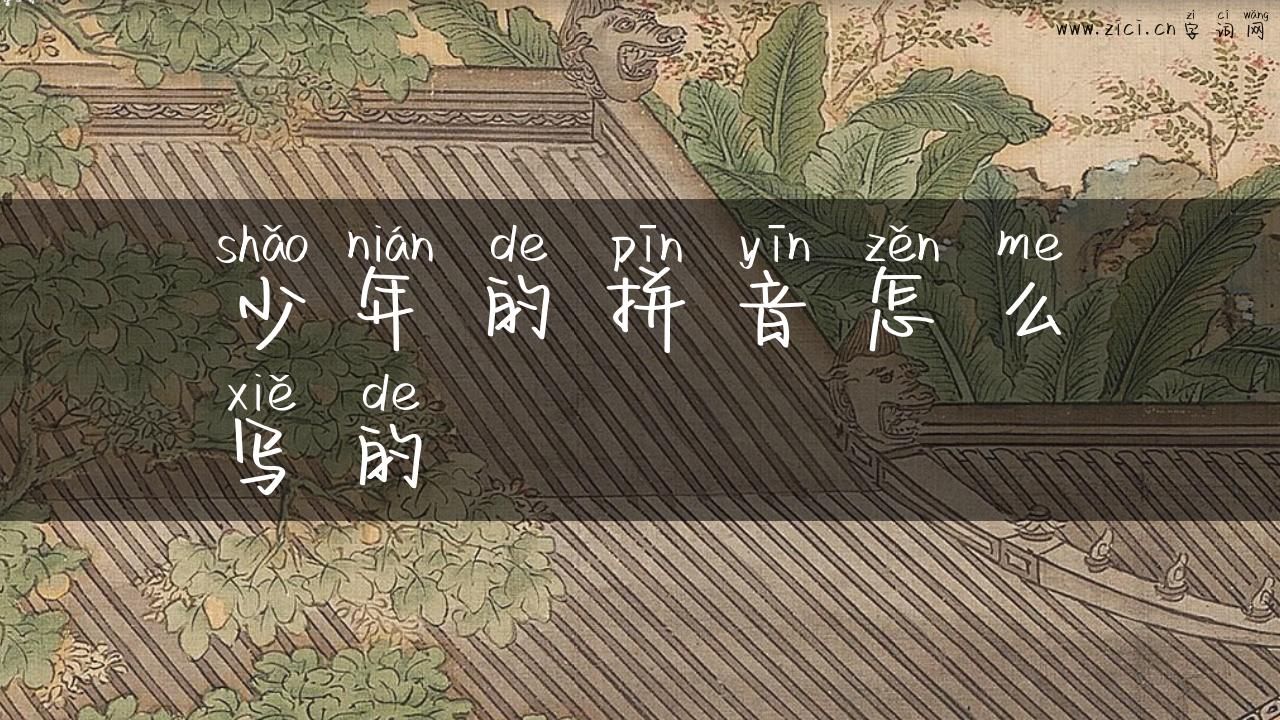 zì cí wǎng
www.zici.cn 字词网
shǎo nián de pīn yīn zěn me
少年的拼音怎么
xiě de
写的